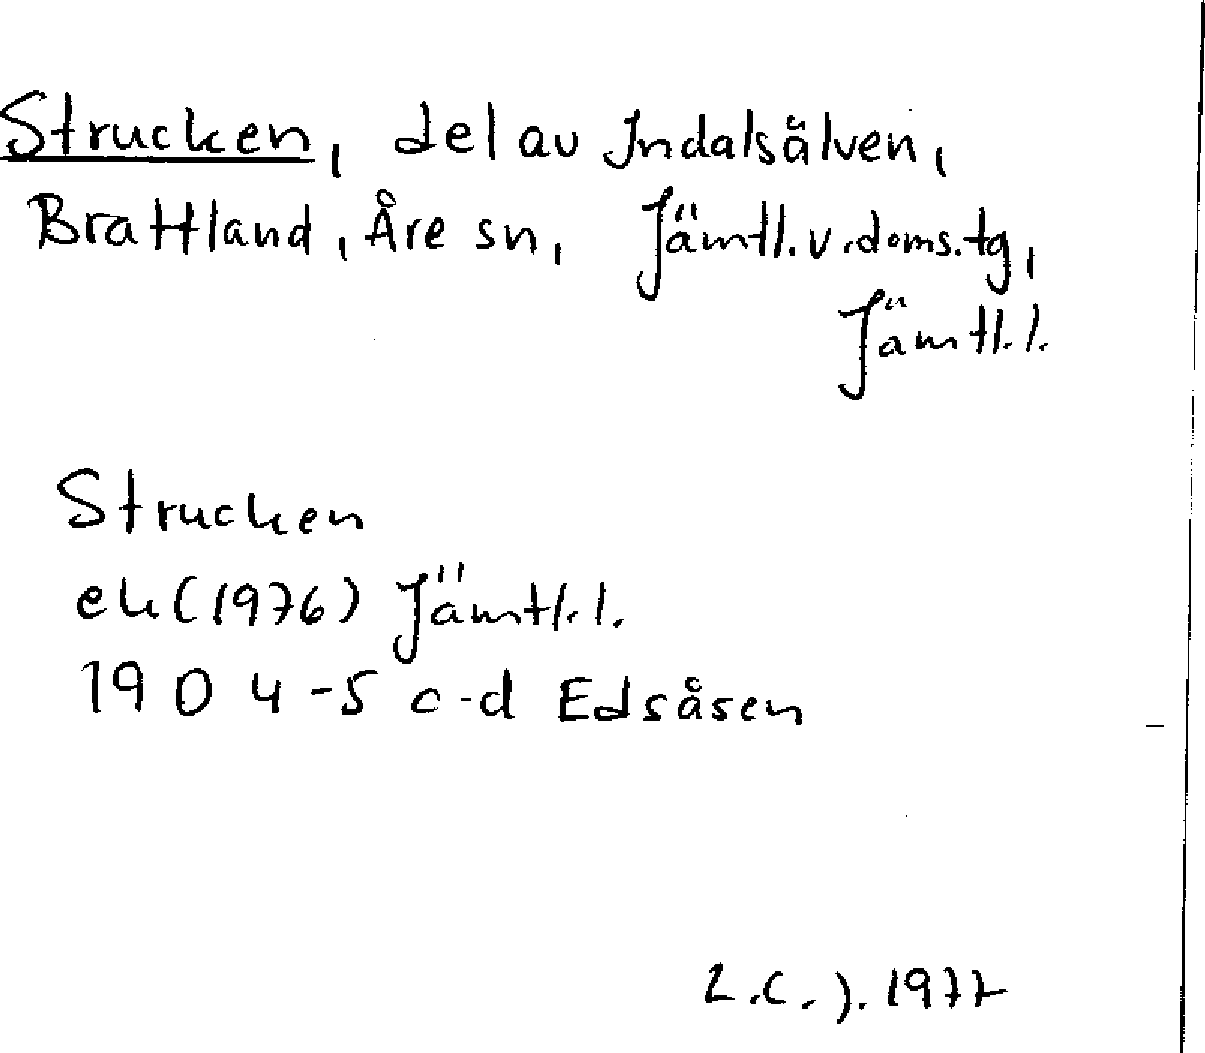 Strucken, del av Indalsälven,
Brattland, Åre sn, Jämtl.v.doms.tg,
Jämtl.l.
Strucken
ek(1976) Jämtl.l.
1904-5 c-d Edsåsen
L.C.J. 1977